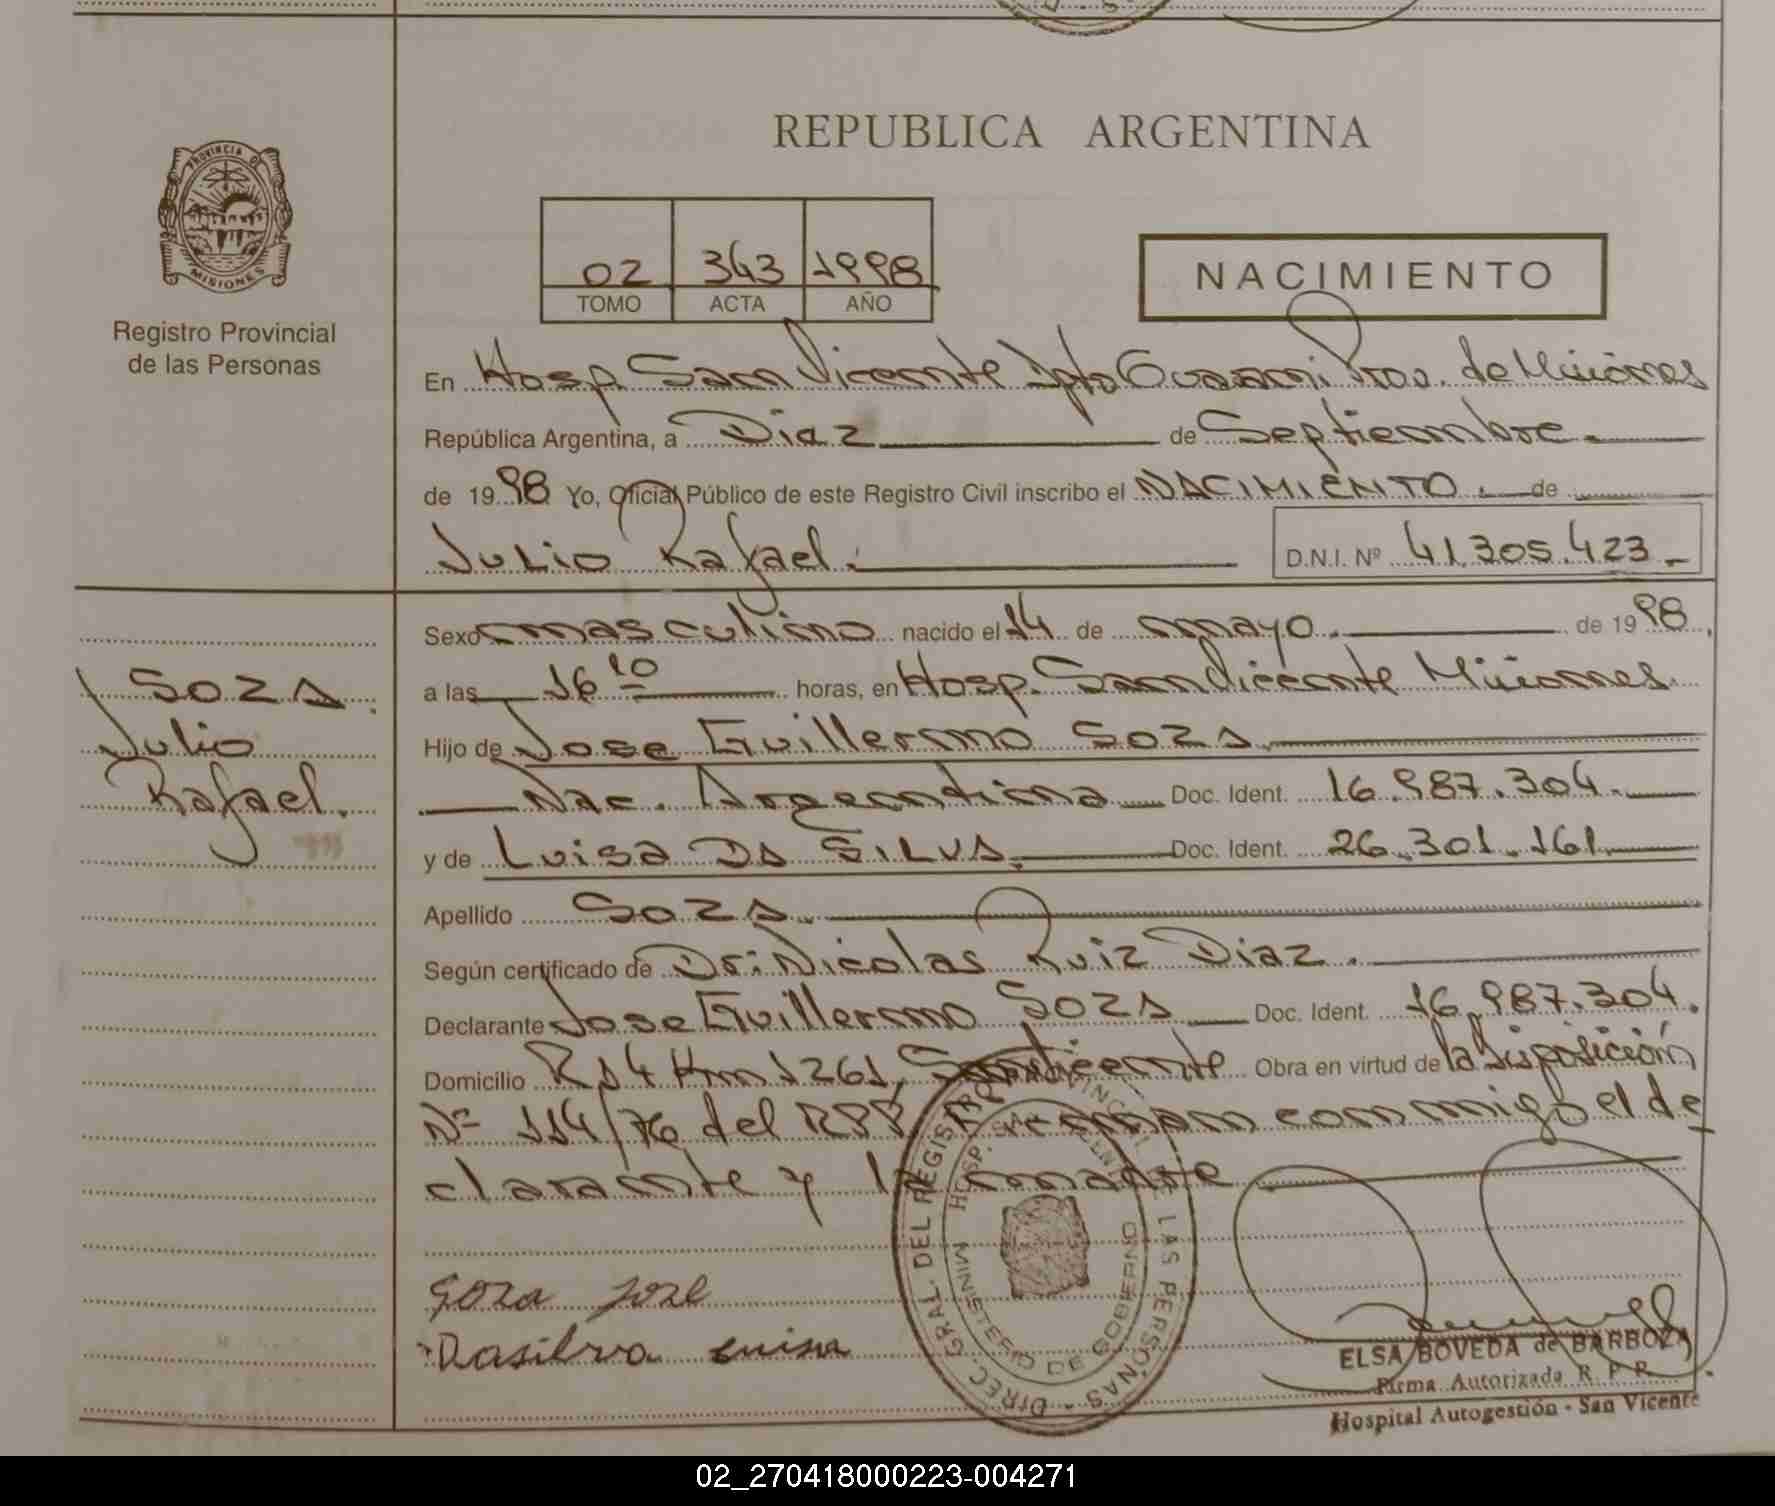 REPUBLICA ARGENTINA
PROVINCIA DE
MISIONES
Registro Provincial
de las Personas
02 343 1998
TOMO ACTA AÑO
NACIMIENTO
En Hosp. San Vicente Dpto Guarani Prov. de Misiones
República Argentina, a Diez de Septiembre.
de 1998 Yo, Oficial Público de este Registro Civil inscribo el NACIMIENTO. de
Julio Rafael. D.N.I. Nº 41.305.423.-
Sexo masculino nacido el 14 de mayo. de 1998.
a las 16 10 horas, en Hosp. San Vicente Misiones
Hijo de Jose Guillermo SOZA
Nac. Argentina Doc. Ident. 16.987.304.
y de Luisa DA SILVA. Doc. Ident. 26.301.161
Apellido SOZA.
Según certificado de Dr: Nicolas Ruiz Diaz.
Declarante Jose Guillermo SOZA Doc. Ident. 16.987.304.
Domicilio R 14 Km 1261, San Vicente Obra en virtud de la disposición
Nº 114/76 del RPP, firman conmigo el de
clarante y la madre
SOZA.
Julio
Rafael.
Soza José
Dasilva Luisa
DIREC. GRAL. DEL REGISTRO PROVINCIAL DE LAS PERSONAS
HOSP. SAN VICENTE
MINISTERIO DE GOBIERNO
ELSA BOVEDA de BARBOZA
Firma Autorizada R. P. P.
Hospital Autogestión - San Vicente
02_270418000223-004271